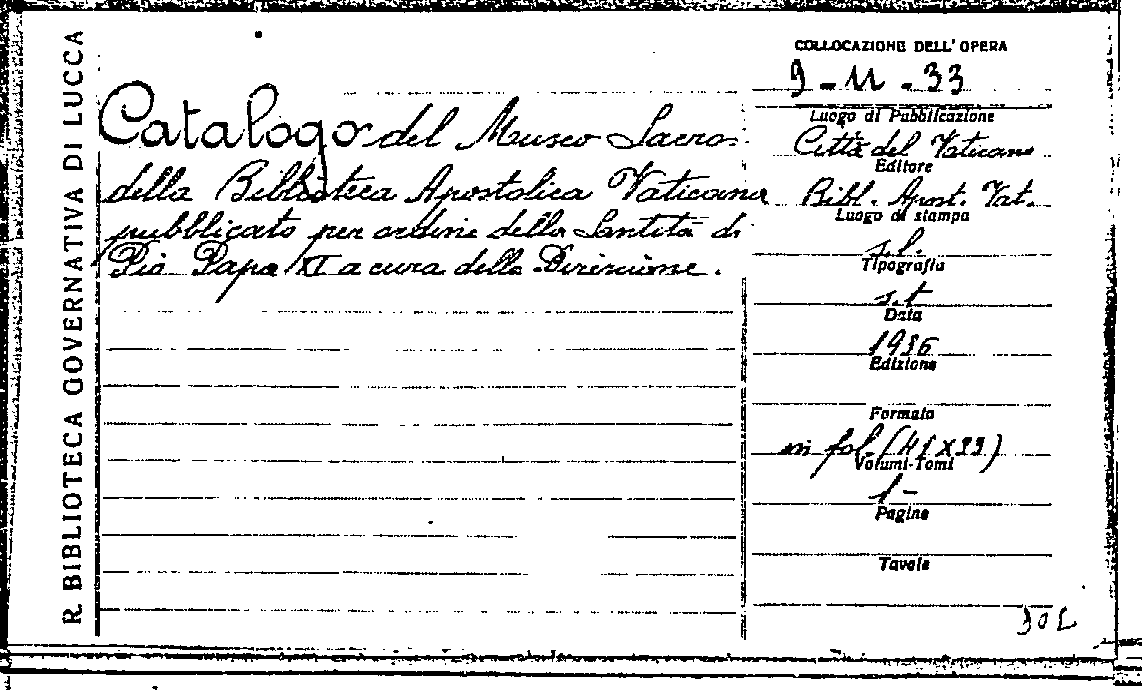 R. BIBLIOTECA GOVERNATIVA DI LUCCA
Catalogo del Museo Sacro
della Biblioteca Apostolica Vaticana
pubblicato per ordine della Santità di
Pio Papa XI a cura della Direzione.
COLLOCAZIONE DELL'OPERA
Luogo di Pubblicazione
Città del Vaticano
Editore
Bibl. Apost. Vat.
Luogo di stampa
s.l.
Tipografia
s.t
Data
1936
Edizione
Formato
in fol. (41x33)
Volumi-Tomi
1-
Pagine
Tavole